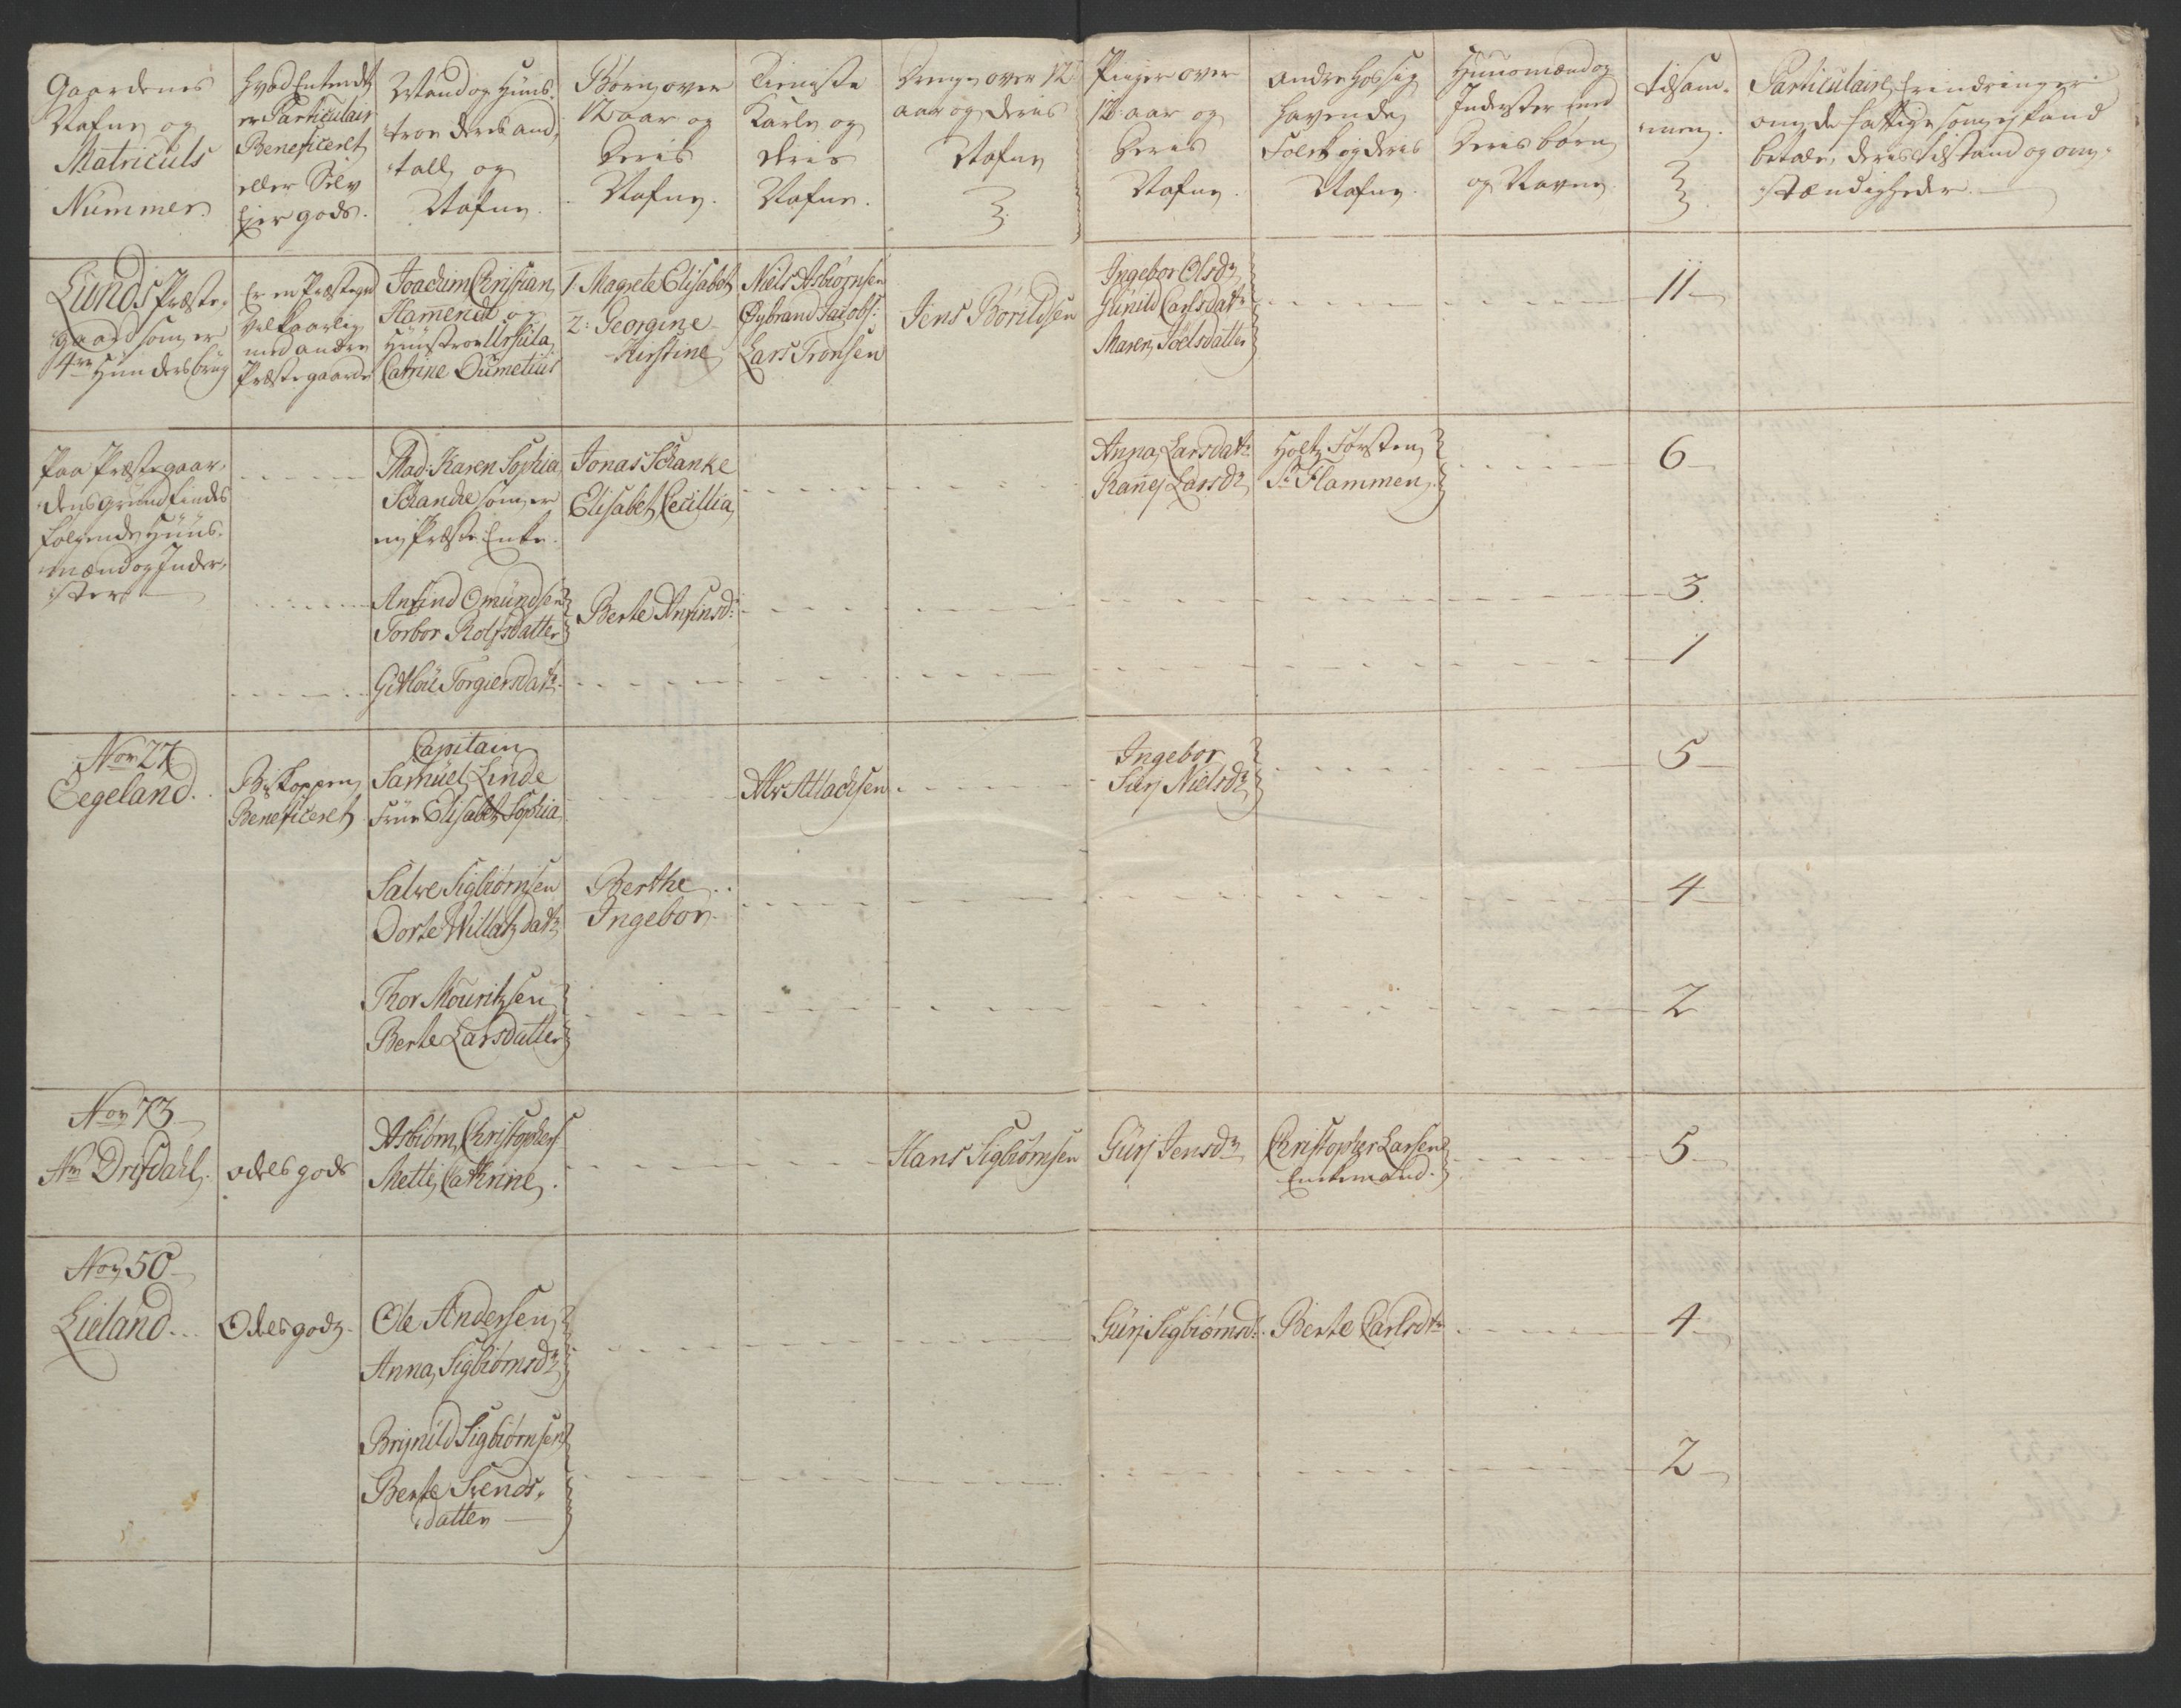 Gaardenes
Nafne og
Matriculs
Nummer.
hvad Entend
er Particulair
Beneficeret
eller Selv
Ejer gods.
Mand og Huus-
troe deres an-
tall og
Nafne.
Børn over
12 aar og
Deris
Nafne.
Tieniste
Karle og
deris
Nafne.
Drenge over 12
aar og deres
Nafne
Piger over
12 aar og
Deris
Nafne.
andre hos sig
havende
Folck og deris
Nafne.
Huusmænd og
Inderster med
Deris børn
og Navne
tilsam-
men.
Particulaire Erindringer
om de fattige som ej kand
betale, deres tilstand og om-
stændigheder.
Lunds Præste-
gaard som er
Er en Præstegrd
med andre
Præstegaarde
Joachim Christian
Hamendt og
Huustroe Ursula
Catrine Dumetius
1. Magrete Elisabet
2: Georgine
Kirstine
Niels Asbiørnsen
Øybrand Jacobs:
Lars Tronsen
Jens Børildsen
Ingebor Olsdr
Gunild Carlsdatr
Maren Joelsdatter
11
Paa Præstegaar-
dens grund findes
følgende Huus-
mænd og Inder-
ster
Mad: Karen Sophia
Schancke som er
en Præste Enke.
Jonas Schanke
Elisabet Cecillia
Anna Larsdatr
Ranej Larsdr
Holtz Førsten
Sr Flammen
6
Anfind Omundsen
Torbor Rolfsdatter
Berte Anfinsdr
3.
Gitloü Torgiersdatr
1
Nor 27
Eegeland.
Biskoppens
Beneficeret
Capitain
Samuel Linde
Frue Elisabet Sophia
Alv Atlachsen
Ingebor
Siri Nielsdr
5
Salve Sigbiørnsen
Dorte Willatzdatr
Berthe
Ingebor
4
Thor Mouritzsen
Berte Larsdatter
2
Nor 73
Nr Drifdahl.
odels gods
Asbiørn Christophers
Mette Cathrine.
Hans Sigbiørnsen
Gurj Jensdr
Christopher Larsen
Enkemand.
5
Nor 50
Lieland
Odels godz
Ole Andersen
Anna Sigbiørnsdr
Gurj Sigbiørnsdr
Berte Carlsdtr
4
Brynild Sigbiørnsen
Berte Svends-
datter
2